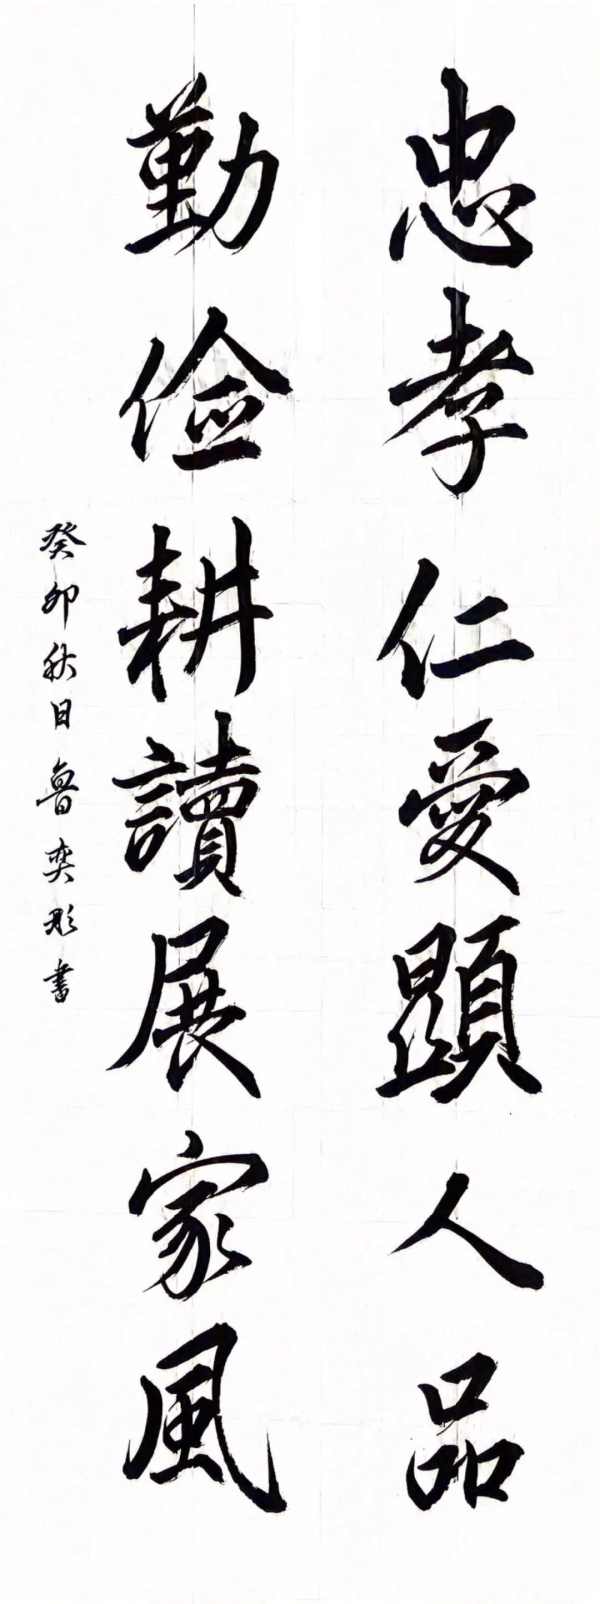 忠孝仁愛顕人品
勤俭耕讀展家風
癸卯秋日魯奕彤書